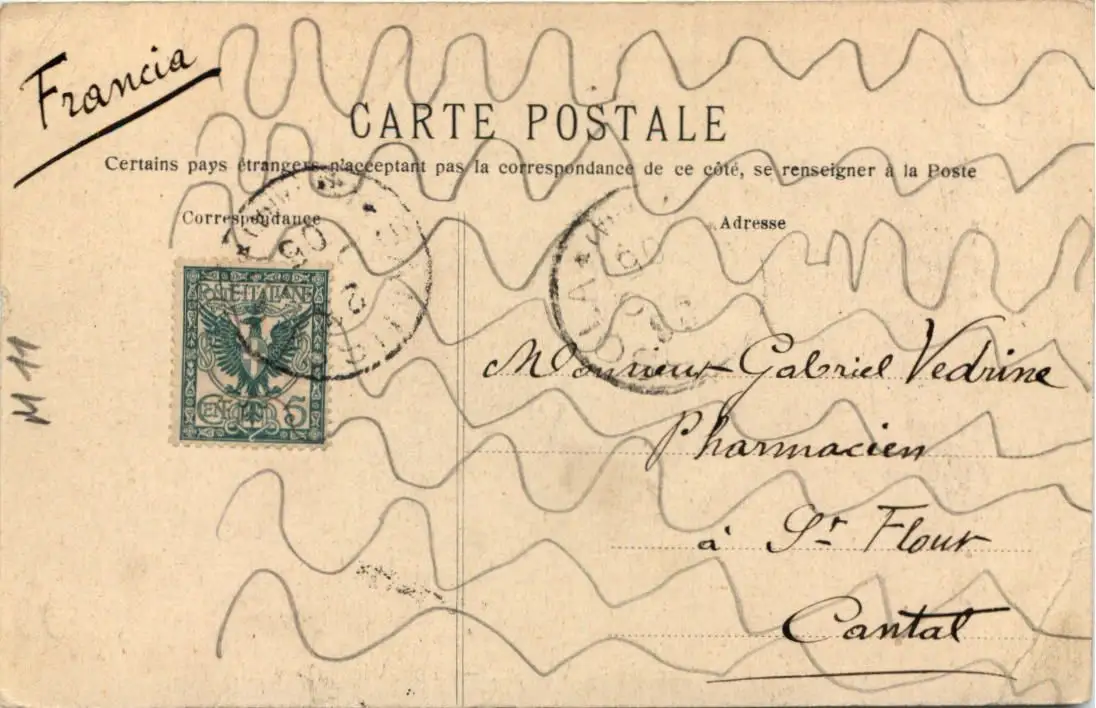 Francia
CARTE POSTALE
Certains pays étrangers n'acceptant pas la correspondance de ce côté, se renseigner à la Poste
Correspondance
Adresse
POSTE ITALIANE
CENT. 5
M 11
Monsieur Gabriel Vedrine
Pharmacien
à St Flour
Cantal